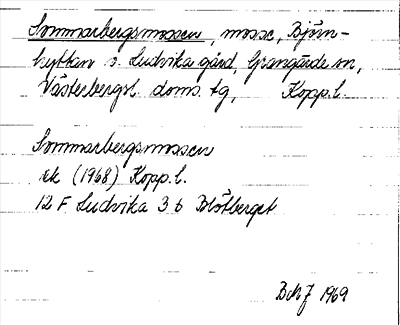 Sommarbergsmossen, mosse, Björn-
hyttan s. Ludvika gård, Grangärde sn,
Västerbergsl. doms. tg, Kopp.l.
Sommarbergsmossen
ek (1968) Kopp.l.
12 F Ludvika 3 b Blötberget
1969